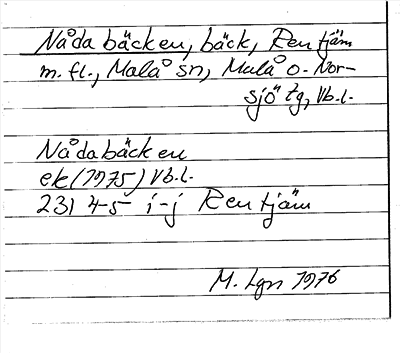 Nådabäcken, bäck, Rentjärn
m.fl., Malå sn, Malå o. Nor-
sjö tg, Vb.l.
Nådabäcken
ek (1975) Vb.l.
231 4-5 i-j Rentjärn
M. Lgn 1976